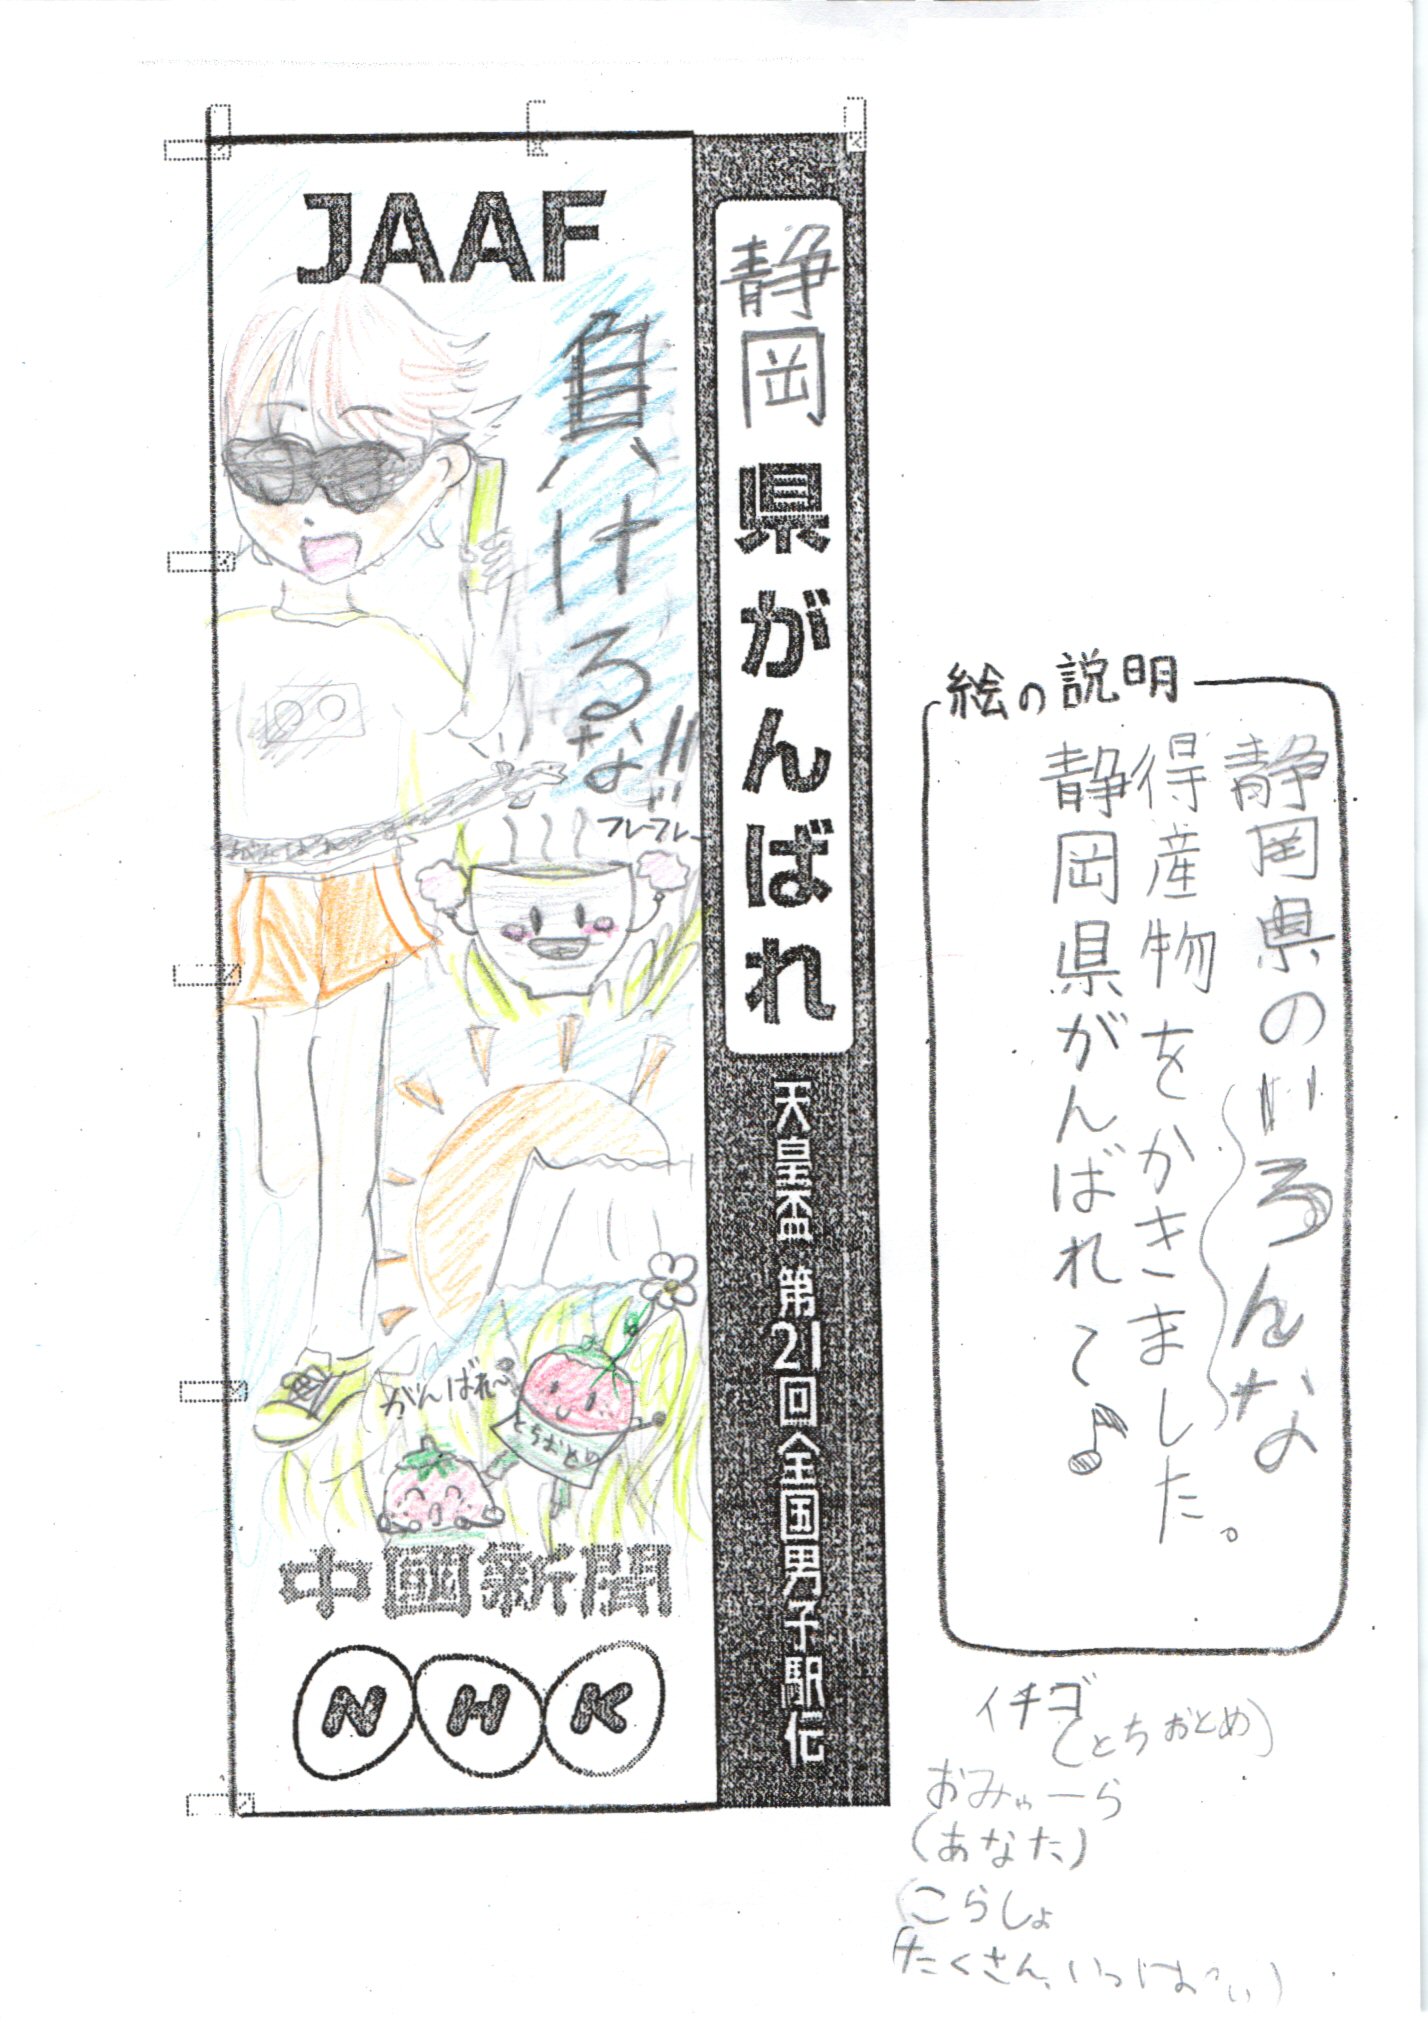 JAAF
負けるな!!
フレーフレー
がんばれ〜
とちおとめ
中國新聞
NHK
静岡県がんばれ
天皇盃 第21回全国男子駅伝
絵の説明
静岡県のいろんな
得産物をかきました。
静岡県がんばれて♪
イチゴ
(とちおとめ)
おみゃーら
(あなた)
(こらしょ
(たくさん、いっぱい)